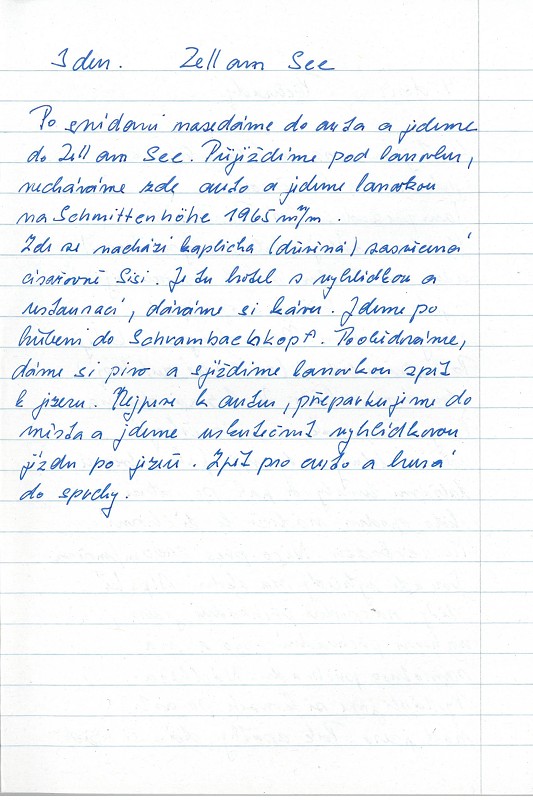 3 den. Zell am See
Po snídani nasedáme do auta a jdeme
do Zell am See. Přijíždíme pod lanovku,
necháváme zde auto a jdeme lanovkou
na Schmittenhöhe 1965 m/m.
Zde se nachází kaplička (dřevěná) zasvěcená
císařovně Sisi. Je tu hotel s vyhlídkou a
restaurací, dáváme si kávu. Jdeme po
hřebeni do Schrambachkopf. Poobědváme,
dáme si pivo a sjíždíme lanovkou zpět
k jezeru. Nejprve k autu, přeparkujeme do
města a jdeme uskutečnit vyhlídkovou
jízdu po jezeře. Zpět pro auto a hurá
do sprchy.